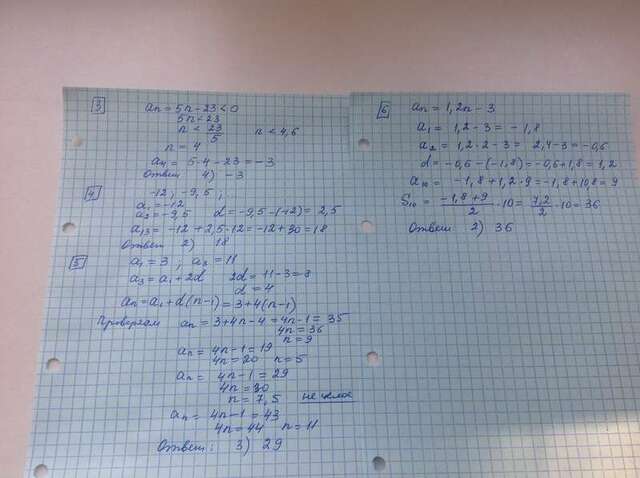 3 an = 5n - 23 < 0
5n < 23
n < 23/5 n < 4,6
n = 4
a4 = 5·4 - 23 = -3
Ответ 4) -3
4 -12; -9,5; ...
a1 = -12
a2 = -9,5 d = -9,5 - (-12) = 2,5
a13 = -12 + 2,5·12 = -12 + 30 = 18
Ответ 2) 18
5 a1 = 3; a3 = 11
a3 = a1 + 2d 2d = 11 - 3 = 8
d = 4
an = a1 + d(n-1) = 3 + 4(n-1)
Проверяем an = 3 + 4n - 4 = 4n - 1 = 35
4n = 36
n = 9
an = 4n - 1 = 19
4n = 20 n = 5
an = 4n - 1 = 29
4n = 30
n = 7,5 не целое
an = 4n - 1 = 43
4n = 44 n = 11
Ответ: 3) 29
6 an = 1,2n - 3
a1 = 1,2 - 3 = -1,8
a2 = 1,2·2 - 3 = 2,4 - 3 = -0,6
d = -0,6 - (-1,8) = -0,6 + 1,8 = 1,2
a10 = -1,8 + 1,2·9 = -1,8 + 10,8 = 9
S10 = (-1,8 + 9)/2 · 10 = 7,2/2 · 10 = 36
Ответ 2) 36